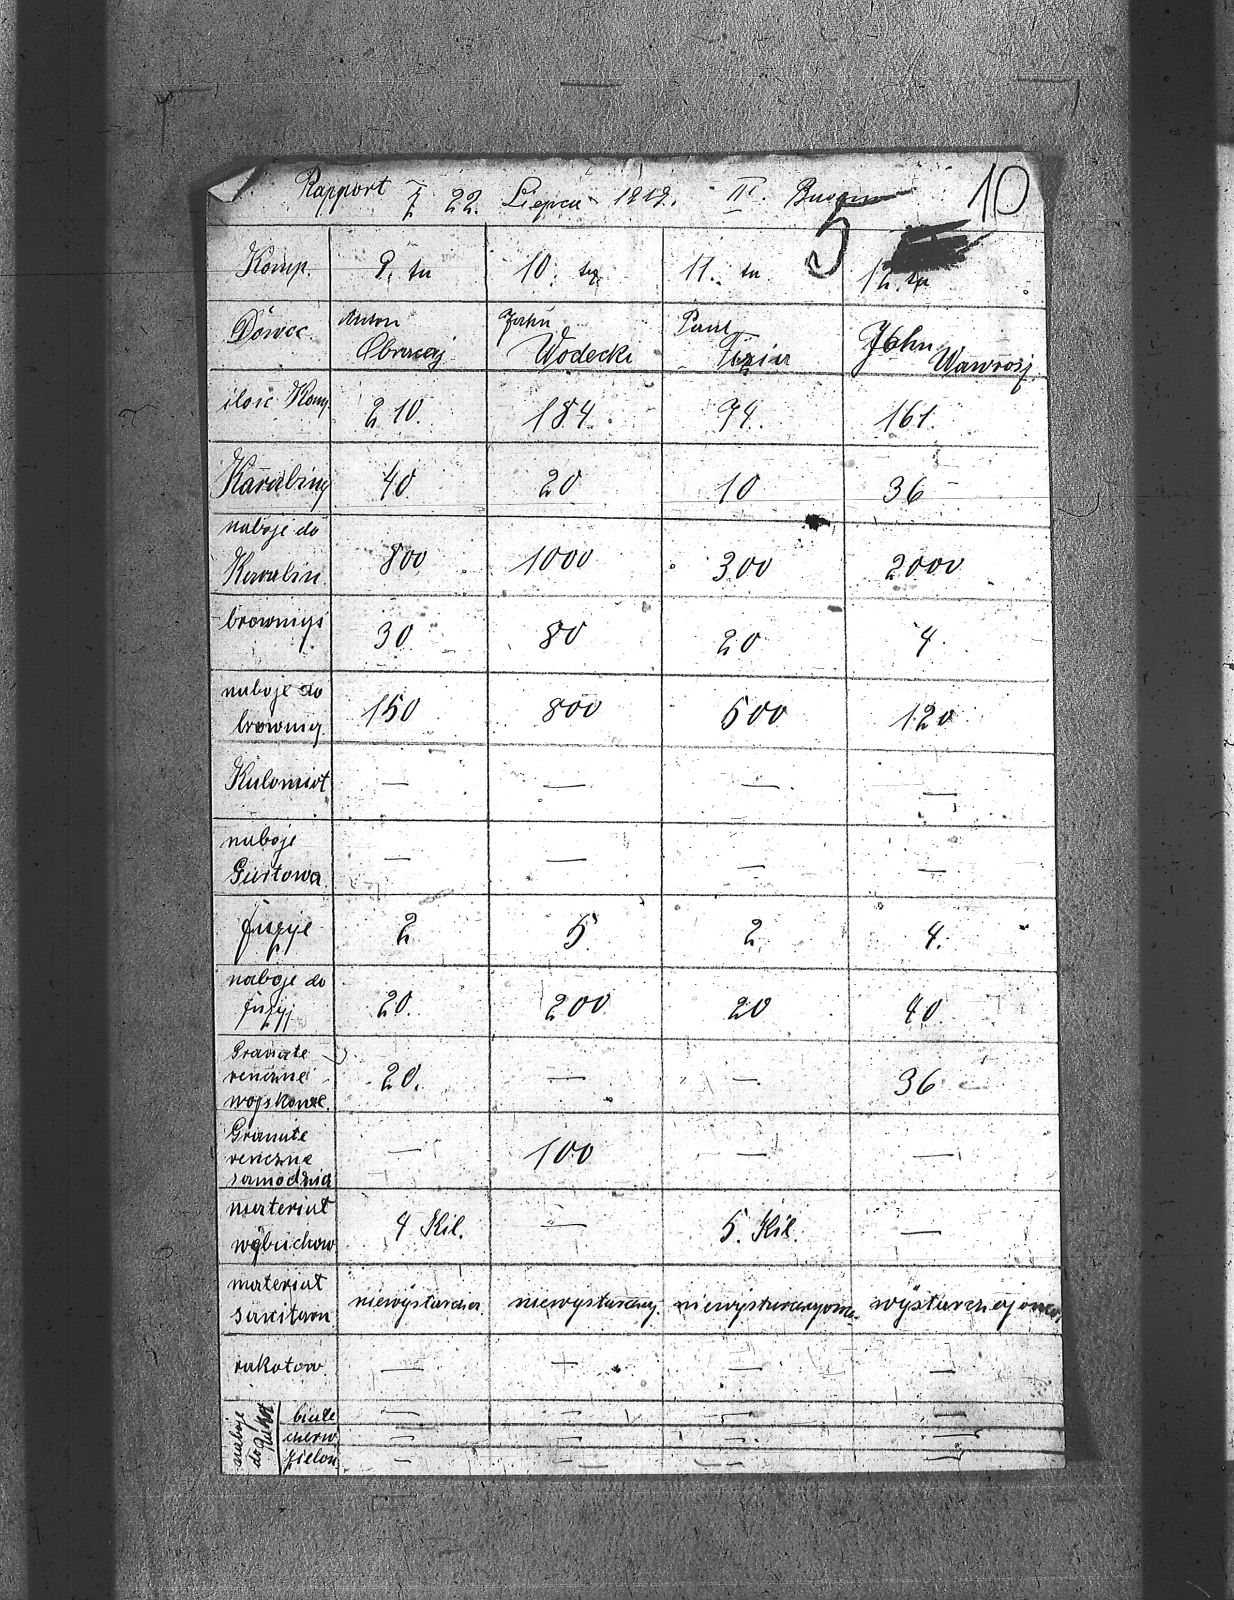 Rapport z 22. Liepca 1919. III. 10
5
Komp. 9. ta 10. ta 11. ta 12. ta
Dówoc Anton John Paul John
Wodecki Wawrosj
ilosc Komp 210. 184. 94. 161.
Karabiny 40 20 10 36
naboje do
Karabin 800 1000 300 2000
brownigi 30 80 20 4
naboje do
browning 150 800 500 120
Kulomiot — — — —
naboje
Gurtowa — — — —
fuzyje 2 5 2 4.
naboje do
fuzyj 20. 200 20 40
Granate
renczne
wojskowe. 20. — — 36
Granate
renczne
samodzna — 100 — —
materiat
wybuchow 4 Kil. — 5. Kil. —
materiat
sanitarn niewystarcha niewystarczaj niewystarczajonca wystarchajonca
rakotow. — — — —
naboje do Raket biale — — — —
cherw — — — —
zielon — — — —